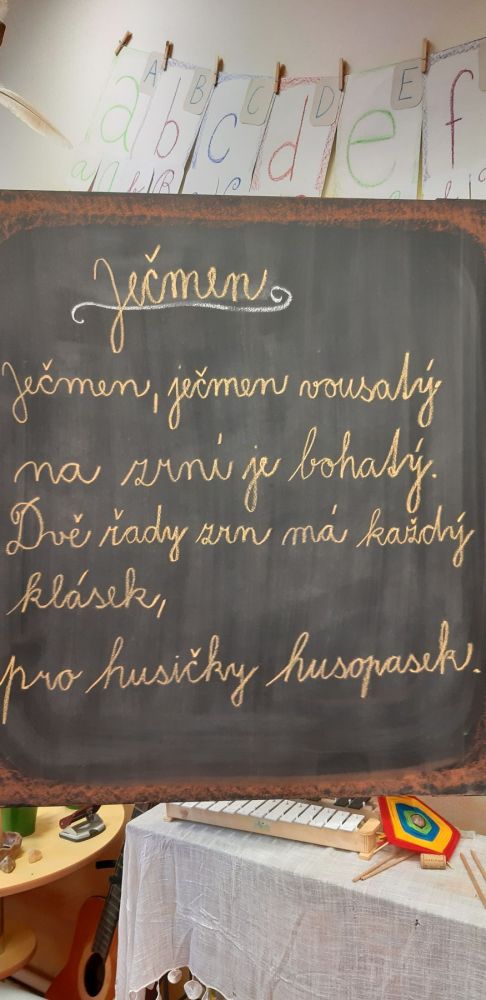 A B C D E
a b c d e f
Ječmen
Ječmen, ječmen vousatý
na zrní je bohatý.
Dvě řady zrn má každý
klásek,
pro husičky husopasek.